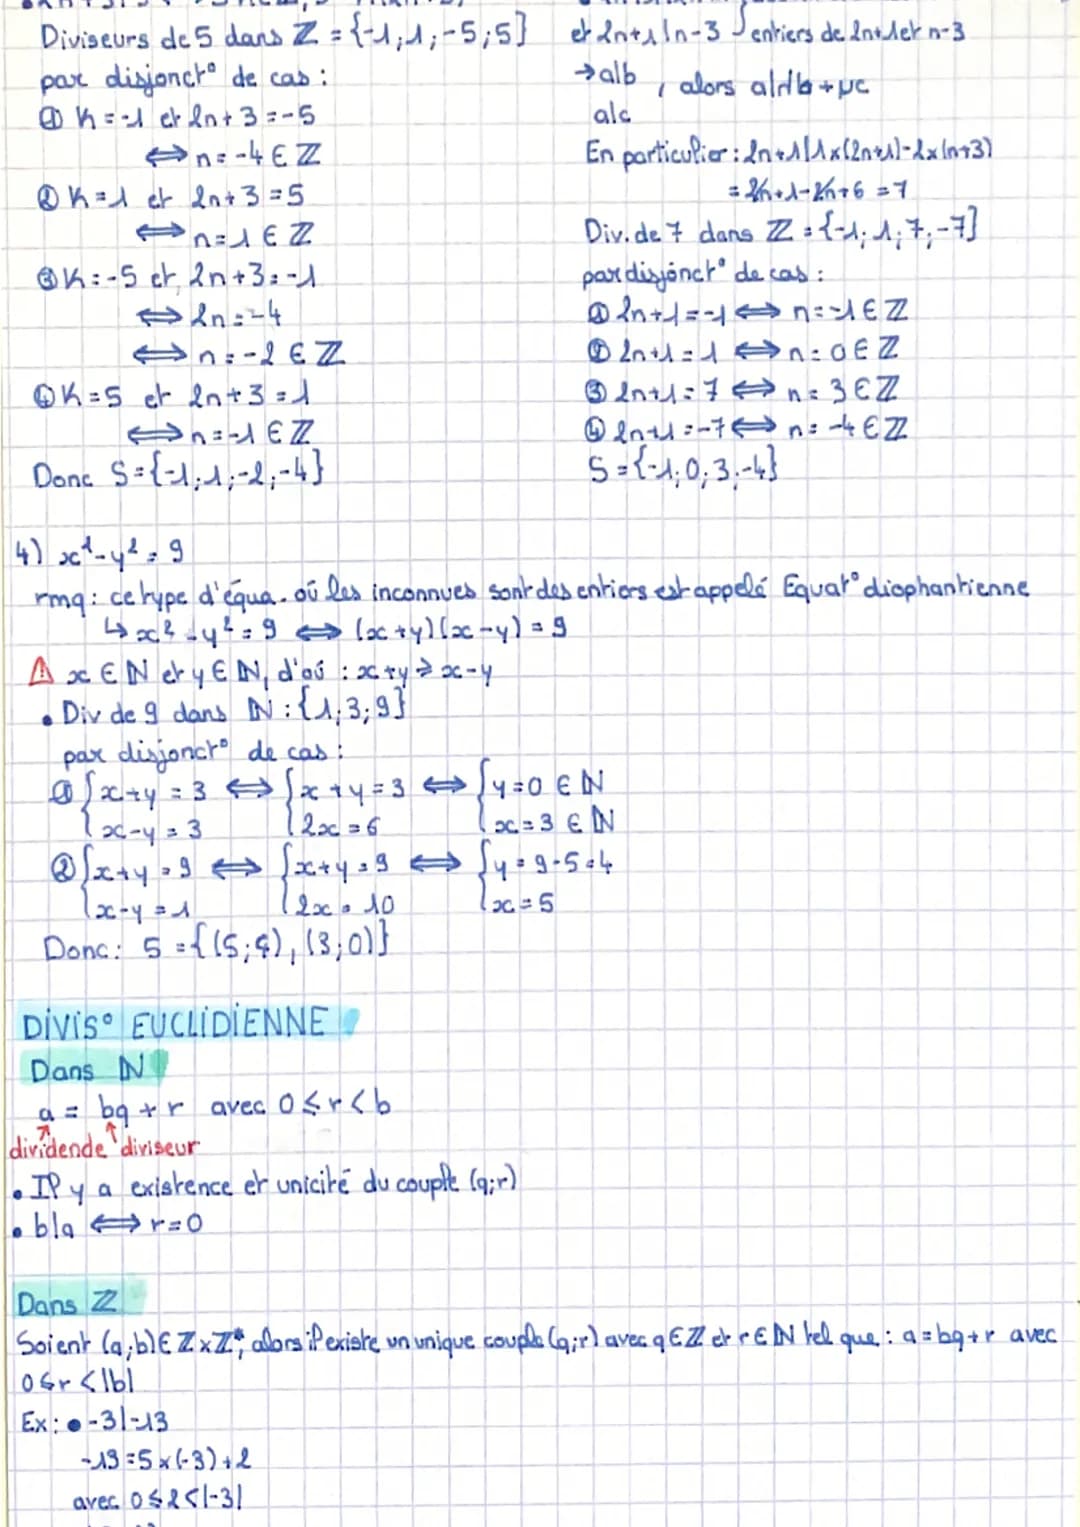 Diviseurs de 5 dans ℤ = {-1;1;-5;5}
par disjonct° de cas :
① K=-1 et 2n+3=-5
⟺ n=-4 ∈ ℤ
② K=1 et 2n+3=5
⟺ n=1 ∈ ℤ
③ K=-5 et 2n+3=-1
⟺ 2n=-4
⟺ n=-2 ∈ ℤ
④ K=5 et 2n+3=1
⟺ n=-1 ∈ ℤ
Donc S={-1;1;-2;-4}
et 2n+1|n-3 entiers de 2n+1 et n-3
→ a|b
, alors a|λb+μc
a|c
En particulier : 2n+1|1x(2n+1)-2x(n+3)
= 2n+1-2n+6 = 7
Div. de 7 dans ℤ = {-1;1;7;-7}
par disjonct° de cas :
① 2n+1=-1 ⟺ n=-1 ∈ ℤ
② 2n+1=1 ⟺ n=0 ∈ ℤ
③ 2n+1=7 ⟺ n=3 ∈ ℤ
④ 2n+1=-7 ⟺ n=-4 ∈ ℤ
S={-1;0;3;-4}
4) x²-y²=9
rmq: ce type d'équa. où les inconnues sont des entiers est appelé Equat° diophantienne
↳ x²-y²=9 ⟺ (x+y)(x-y)=9
⚠ x ∈ ℕ et y ∈ ℕ, d'où : x+y ≥ x-y
• Div de 9 dans ℕ : {1;3;9}
par disjonct° de cas :
① {x+y=3 ⟺ {x+y=3 ⟺ {y=0 ∈ ℕ
x-y=3 2x=6 x=3 ∈ ℕ
② {x+y=9 ⟺ {x+y=9 ⟺ {y=9-5=4
x-y=1 2x=10 x=5
Donc: S={(5;4),(3;0)}
DIVIS° EUCLIDIENNE
Dans ℕ
a = bq + r avec 0≤r<b
dividende diviseur
• Il y a existence et unicité du couple (q;r)
• b|a ⟺ r=0
Dans ℤ
Soient (a;b) ∈ ℤxℤ*, alors il existe un unique couple (q;r) avec q ∈ ℤ et r ∈ ℕ tel que : a=bq+r avec
0≤r<|b|
Ex: • -3|-13
-13=5x(-3)+2
avec 0≤2<|-3|